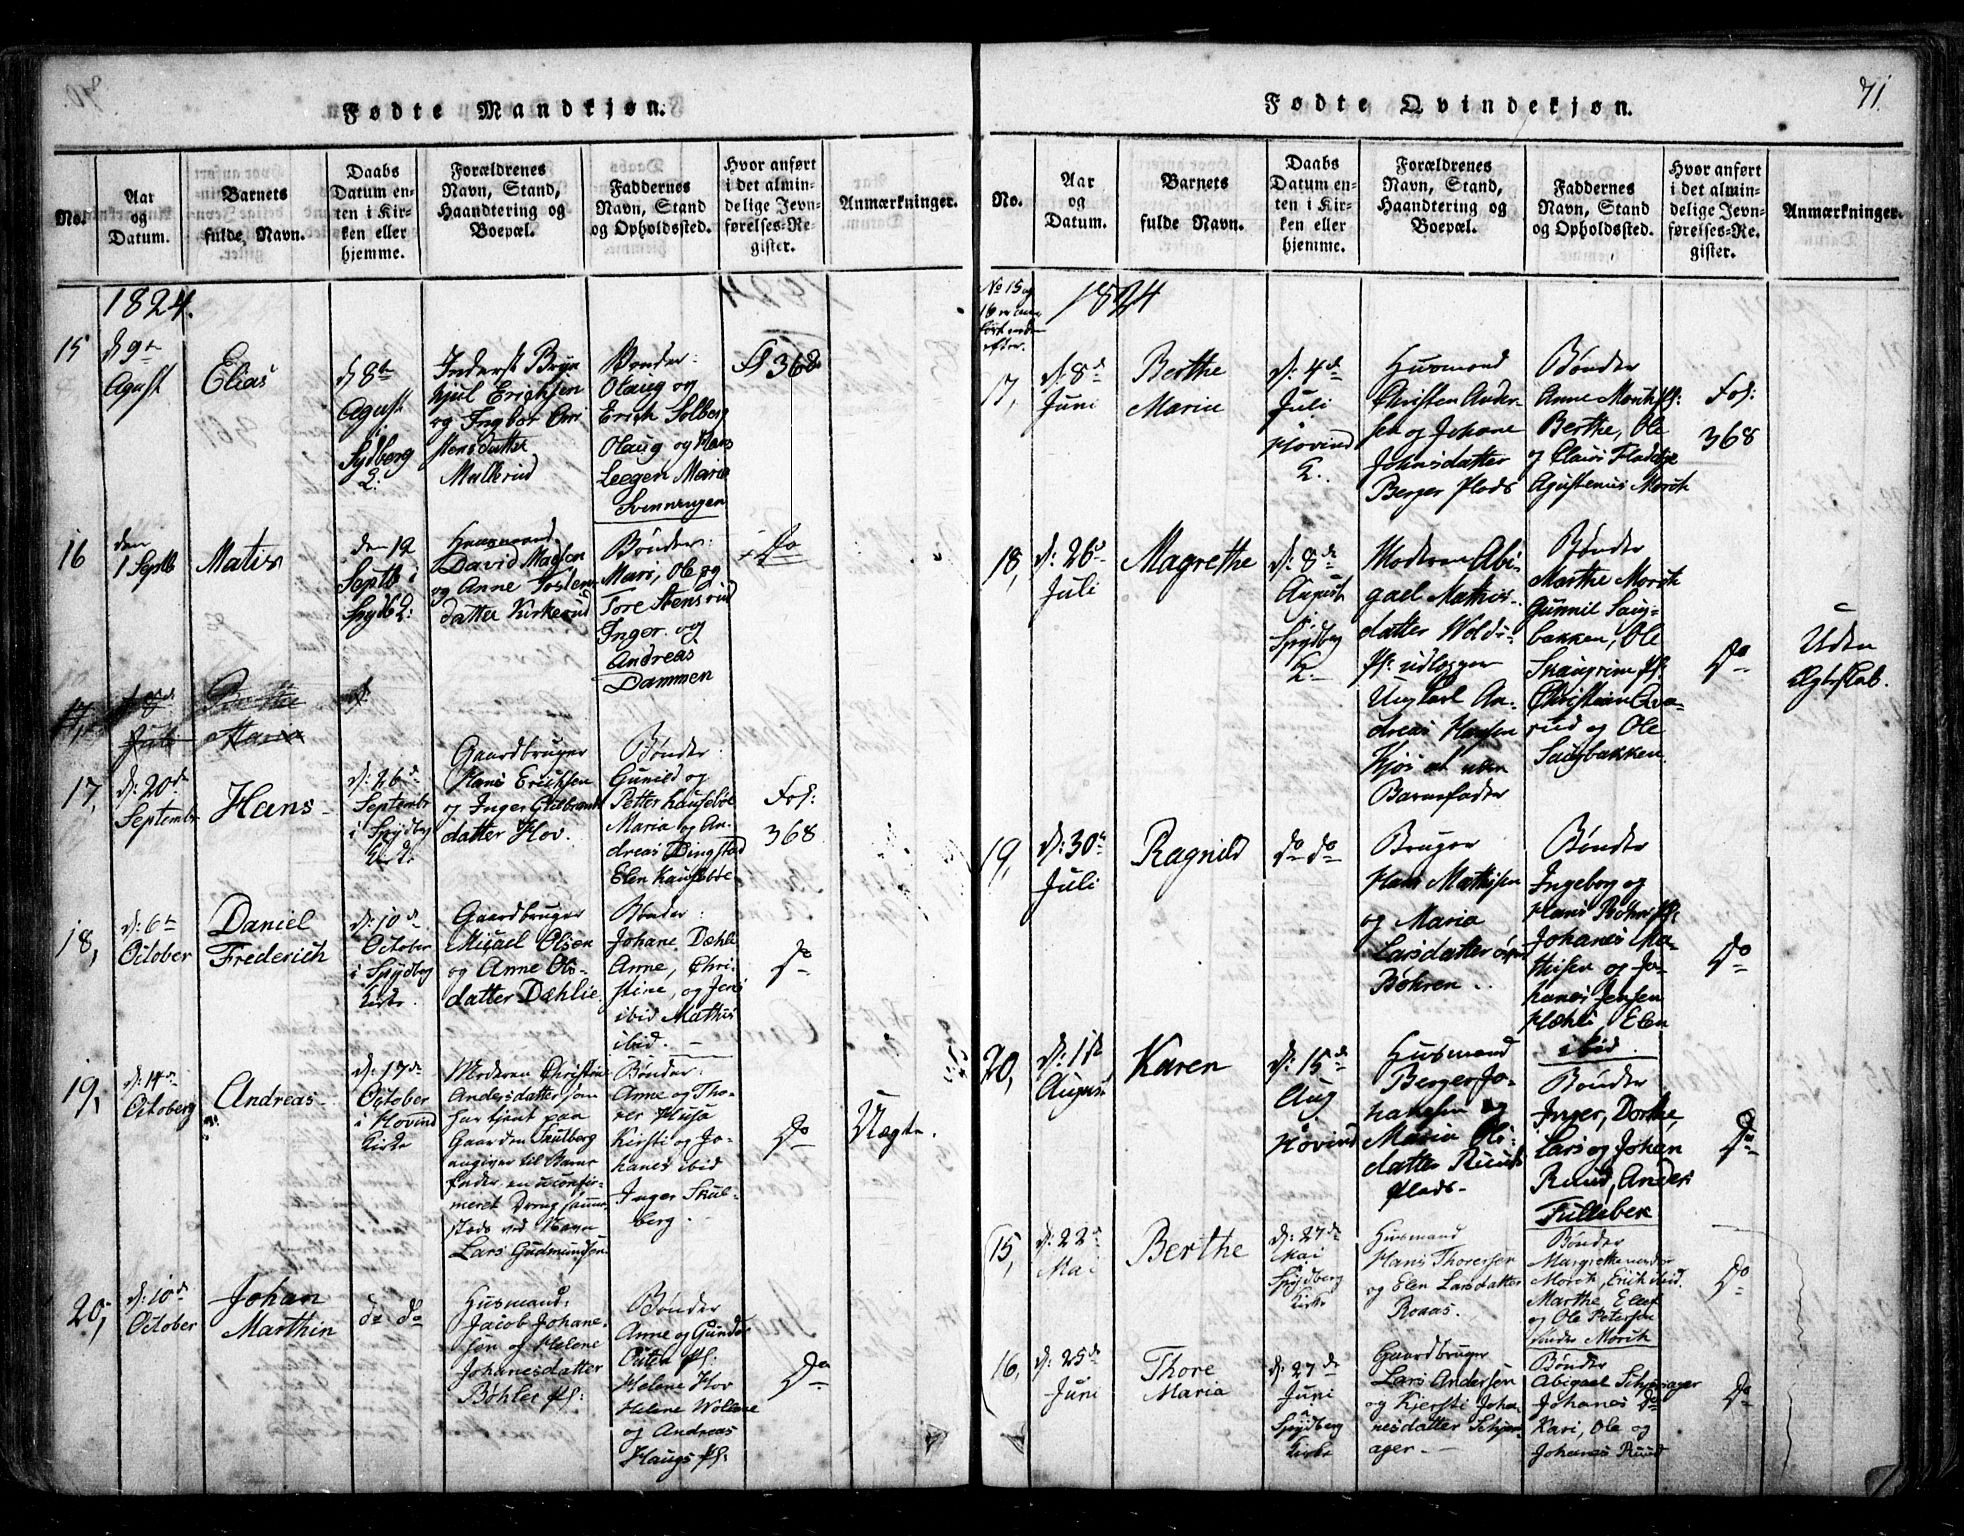 Fødte Mandkjøn.
No.
Aar
og
Datum.
Barnets
fulde Navn.
Daabs
Datum en-
ten i Kir-
ken eller
hjemme.
Forældrenes
Navn, Stand,
Haandtering og
Boepæl.
Faddernes
Navn, Stand
og Opholdssted.
Hvor anført
i det almin-
delige Jevn-
førelses-Re-
gister.
Anmærkninger.
1824.
15
d 9de
Agust
Elias
d 8de
Agust
i
Spdberg
K:
Inderst Bryn
hjul Erichsen
og Ingbor
datter
Mallerud
Bønder:
Olaug og
Erich Solberg
Olaug og Hans
Leegen Marie
Svennugen
368
16
den
1 Septb
Matis
den 12
Septb i
Spydb K:
Huusmand
David Magson
og Anne Josten
datter Kirkerud
Bønder:
Mari, Ole og
Tore Stensrud
Inger og
Andreas
Dammen
Do
17,
Juli
Berthe
Maria
17,
d: 20de
Septembr
Hans
d: 26de
Septembr
i Spydbg
Kirke
Gaardbruger
Hans Erichsen
og Inger Gulbrands
datter Hov.
Bønder:
Gunild og
Petter Kausebøe
Maria og An-
dreas Dingstad
Elen Kausebøe
Fol:
368
18,
d: 6te
October
Daniel
Frederich
d: 10de
October
i Spydbg
Kirke.
Gaardbruger
Micael Olsen
og Anne Ols-
datter Dæhlie
Bønder:
Johane Dæhli
Anne, Chri-
stine, og Jens
ibid Mathis
ibid.
Do
19,
d: 14de
October
Andreas
d: 17de
October
i Hovind
Kirke
Moderen Christine
Andersdatter som
har tjent paa
Gaarden Skulberg
angiver til Barne
fader en uconfir-
meret Dreng
steds ved Navn
Lars Gudmundsen
Bønder:
Anne og Tho-
rer Husa
Kirsti og Jo-
hanes ibid
Inger Skul-
berg.
Do
Uægte.
20,
d: 10de
October
Johan
Marthin
do do
Husmand:
Jacob Johane-
sen og Helene
Johanesdatter
Bøhler Pl:
Bønder
Anne og Gunder
Outen Pl:
Helene Hov
Helene Wollene
og Andreas
Haugs Pl:
Do
71.
Fødte Qvindekjøn.
No.
Aar
og
Datum.
Barnets
fulde Navn.
Daabs
Datum en-
ten i Kir-
ken eller
hjemme.
Forældrenes
Navn, Stand,
Haandtering og
Boepæl.
Faddernes
Navn, Stand
og Opholdssted.
Hvor anført
i det almin-
delige Jevn-
førelses-Re-
gister.
Anmærkninger.
No 15 og
16 ere an-
ført neden
efter.
1824
17,
d: 8de
Juni
Berthe
Marie
d: 4de
Juli
Hovind
K.
Husmand
Christen Ander-
sen og Johane
Johnsdatter
Berger Plads
Bønder
Anne Mørch Pl:
Berthe, Ole
og Claus Fladebye
Agustenus Mørch
Fol:
368
18,
d: 26de
Juli
Magrethe
d: 8de
August
Spydbeg
K.
Moderen Abi-
gael Mathis-
datter Wolds-
Pl: udlegger
Ungkarl An-
dreas Hansen
Kjos at være
Barnefader
Bønder
Marthe Mørch
Gunnil Saug-
bakken, Ole
Skaugrim Pl:
Christian
rud og Ole
Saugbakken.
Do
Uden
Ægteskab.
19,
d: 30te
Juli
Ragnild
do do
Bruger
Hans Mathisen
og Maria
Larsdatter
Bøhren.
Bønder
Ingeborg og
Hans Bøhren Pl:
Johanes Ma-
thisen og Jo-
hanes Jensen
Hæhli Elen
ibid.
Do
20,
d: 1ste
August
Karen
d: 15de
Aug
Hovind
Husmand
Berger Jo-
hansen og
Maria Ols-
datter Ruuds
plads-
Bønder
Inger, Dorthe,
Lars og Johan
Ruud, Anders
Fulleber
Do
15,
d: 22de
Mai
Berthe
d: 27de
Mai
Spydberg
Kirke
Husmand
Hans Thoresen
og Elen Larsdatter
Roaas.
Bønder
Margrethe nordre
Mørch, Erich ibid.
Marthe Elef
og Ole Petersen
søndre Mørch
Do
16,
d: 25de
Juni
Thore
Maria
d: 27de
Juni
Spydberg
Kirke
Gaardbruger
Lars Andersen
og Kjersti Joha-
nesdatter Schjør-
ager.
Bønder
Abigael Schjørager
Johanes do
Kari, Ole og
Johanes Ruud
Do